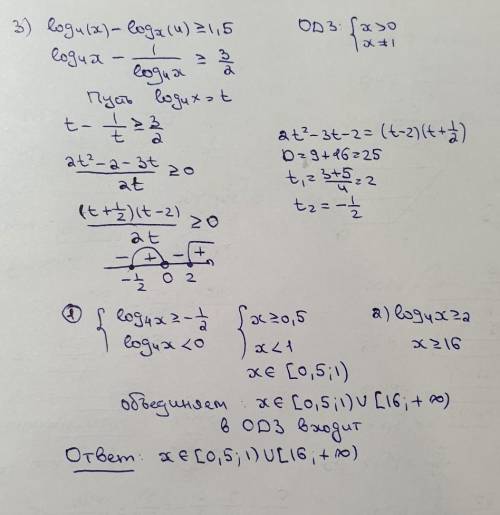 3) log₄(x) − logₓ(4) ≥ 1,5
ОДЗ: { x>0
x≠1
log₄x − 1/log₄x ≥ 3/2
Пусть log₄x = t
t − 1/t ≥ 3/2
(2t² − 2 − 3t)/2t ≥ 0
((t+1/2)(t−2))/2t ≥ 0
− + − +
−1/2 0 2
2t²−3t−2 = (t−2)(t+1/2)
D=9+16=25
t₁ = (3+5)/4 = 2
t₂ = −1/2
1) { log₄x ≥ −1/2 { x ≥ 0,5
log₄x < 0 x < 1
x ∈ [0,5;1)
2) log₄x ≥ 2
x ≥ 16
объединяем: x ∈ [0,5;1) ∪ [16;+∞)
в ОДЗ входит
Ответ: x ∈ [0,5;1) ∪ [16;+∞)